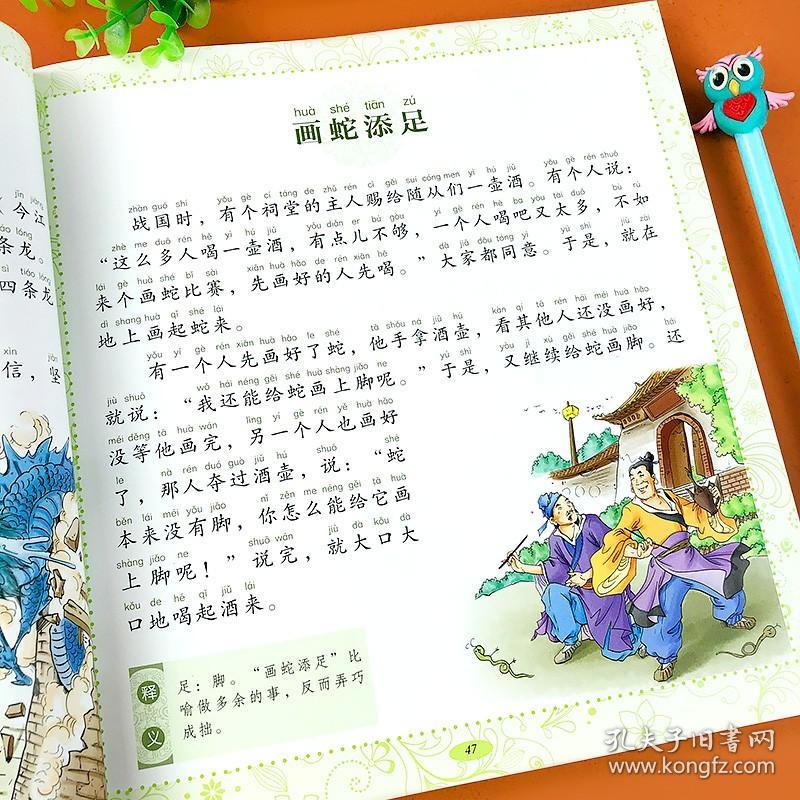 今江
条龙。
四条龙
信，坚
huà shé tiān zú
画蛇添足
zhàn guó shí yǒu gè cí táng de zhǔ rén cì gěi suí cóng men yì hú jiǔ yǒu gè rén shuō
战国时，有个祠堂的主人赐给随从们一壶酒。有个人说：
zhè me duō rén hē yì hú jiǔ yǒu diǎn er bú gòu yí gè rén hē ba yòu tài duō bù rú
“这么多人喝一壶酒，有点儿不够，一个人喝吧又太多，不如
lái gè huà shé bǐ sài xiān huà hǎo de rén xiān hē dà jiā dōu tóng yì yú shì jiù zài
来个画蛇比赛，先画好的人先喝。”大家都同意。于是，就在
dì shang huà qǐ shé lái
地上画起蛇来。
yǒu yí gè rén xiān huà hǎo le shé tā shǒu ná jiǔ hú kàn qí tā rén hái méi huà hǎo
有一个人先画好了蛇，他手拿酒壶，看其他人还没画好，
jiù shuō wǒ hái néng gěi shé huà shàng jiǎo ne yú shì yòu jì xù gěi shé huà jiǎo hái
就说：“我还能给蛇画上脚呢。”于是，又继续给蛇画脚。还
méi děng tā huà wán lìng yí gè rén yě huà hǎo
没等他画完，另一个人也画好
le nà rén duó guò jiǔ hú shuō shé
了，那人夺过酒壶，说：“蛇
běn lái méi yǒu jiǎo nǐ zěn me néng gěi tā huà
本来没有脚，你怎么能给它画
shàng jiǎo ne shuō wán jiù dà kǒu dà
上脚呢！”说完，就大口大
kǒu de hē qǐ jiǔ lái
口地喝起酒来。
释义
足：脚。“画蛇添足”比
喻做多余的事，反而弄巧
成拙。
47
孔夫子旧书网
www.kongfz.com